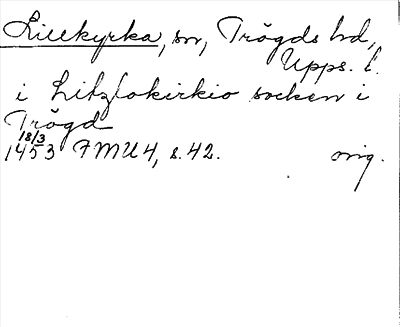 Lillkyrka, sn, Trögds hd,
Upps. l.
i Litzlokirkio socken i
Trögd
18/3
1453 FMU 4, s. 42. orig.